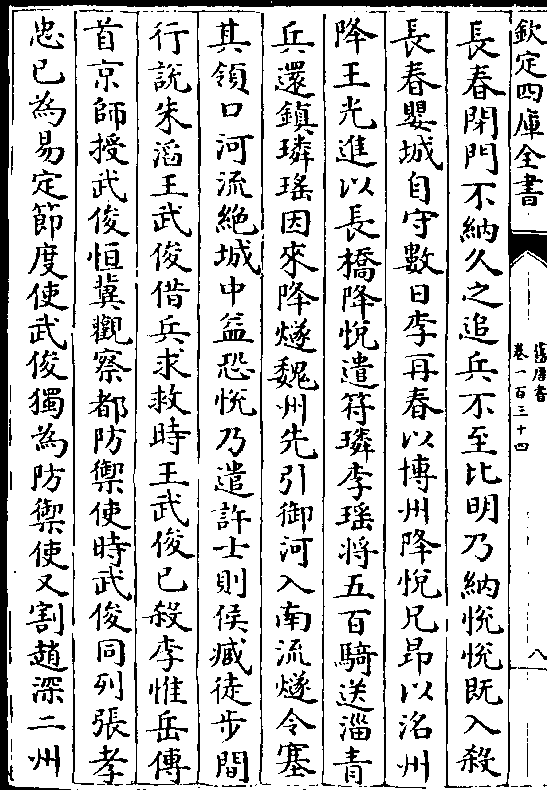 欽定四庫全書
舊唐書
卷一百三十四
八
長春閉門不納久之追兵不至比明乃納悅悅既入殺
長春嬰城自守數日李再春以博州降悅兄昂以洺州
降王光進以長橋降悅遣符璘李瑶將五百騎送淄青
兵還鎮璘瑤因來降燧魏州先引御河入南流燧令塞
其領口河流絶城中益恐悅乃遣許士則侯臧徒步間
行說朱滔王武俊借兵求救時王武俊已殺李惟岳傳
首京師授武俊恒冀觀察都防禦使時武俊同列張孝
忠已為易定節度使武俊獨為防禦使又割趙深二州